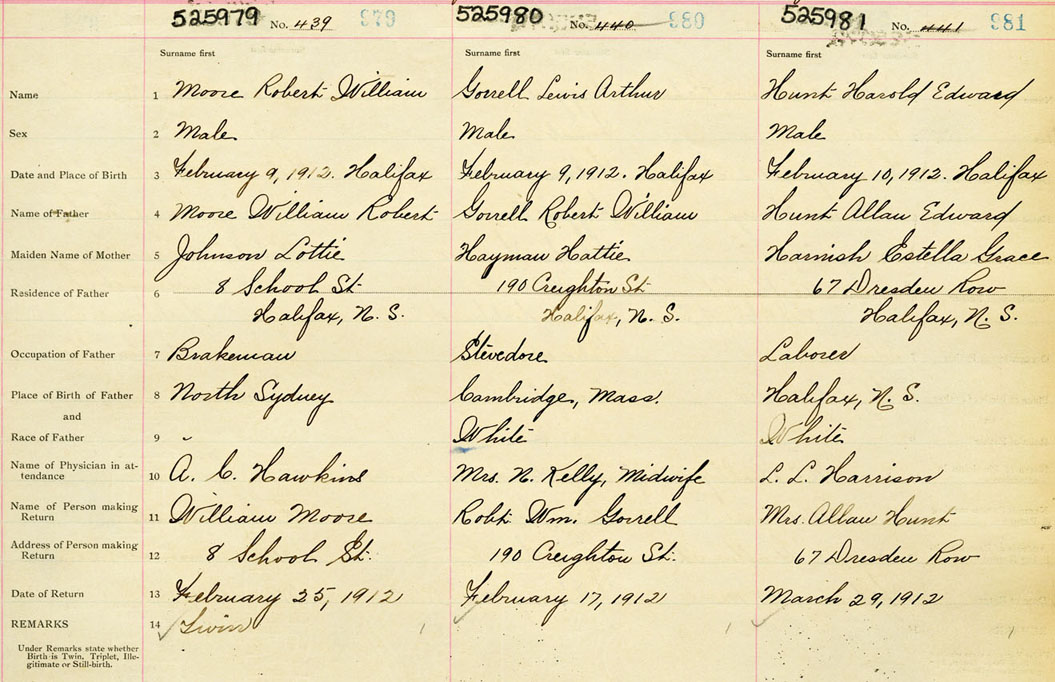 525979 No. 439 979 525980 No. 440 980 525981 No. 441 981
Surname first Surname first Surname first
Name 1 Moore Robert William Gorrell Lewis Arthur Hunt Harold Edward
Sex 2 Male Male Male
Date and Place of Birth 3 February 9, 1912. Halifax February 9, 1912. Halifax February 10, 1912. Halifax
Name of Father 4 Moore William Robert Gorrell Robert William Hunt Allan Edward
Maiden Name of Mother 5 Johnson Lottie Hayman Hattie Harnish Estella Grace
Residence of Father 6 8 School St. 190 Creighton St. 67 Dresden Row
Halifax, N. S. Halifax, N. S. Halifax, N. S.
Occupation of Father 7 Brakeman Stevedore Laborer
Place of Birth of Father 8 North Sydney Cambridge, Mass. Halifax, N. S.
and
Race of Father 9 " White White
Name of Physician in at-
tendance 10 A. C. Hawkins Mrs. N. Kelly, Midwife L. L. Harrison
Name of Person making
Return 11 William Moore Robt. Wm. Gorrell Mrs. Allan Hunt
Address of Person making
Return 12 8 School St. 190 Creighton St. 67 Dresden Row
Date of Return 13 February 25, 1912 February 17, 1912 March 29, 1912
REMARKS 14 Twin
Under Remarks state whether
Birth is Twin, Triplet, Ille-
gitimate or Still-birth.